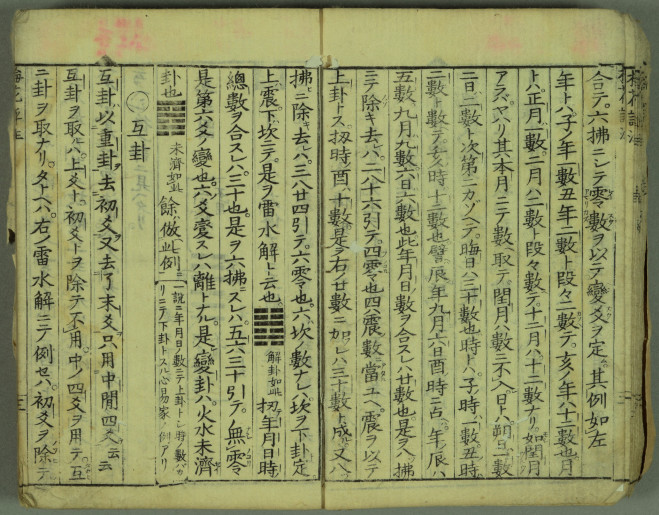 合テ。六拂ニシテ零數ヲ以テ變爻ヲ定。其例如左
年トハ子ノ年一數丑年二數ト段々ニ數テ。亥ノ年ハ十二數也月
トハ正月一數二月ハ二數ト段々數テ。十二月ハ十二數ナリ。如閏月
アラバヤハリ其本月ニテ數取テ閏月ハ數ニ不入日トハ朔日一數
二日二數ト次第ニカゾヘテ。晦日ハ三十數也時トハ。子ノ時一數丑時
二數ト數テ。亥ノ時十二數也譬ハ辰年九月六日酉時ニ占ハ年ノ辰ハ
五數九月九數六日六數也此年月日ノ數ヲ合スレハ廿數也。是ヲ八拂
ニテ除キ去レハ。二八十六引テ。四零也。四ハ震ノ數ニ當ユヘ。震ヲ以テ
上卦トス扨時酉ハ十數。是ヲ右ノ廿數ニ加レハ三十數ト成。又八
拂ニ除去レハ。三八廿四引テ。六零也。六ハ坎ノ數ナレハ坎ヲ下卦定
上震下坎ニテ。是ヲ雷水解ト云也
解卦如此
扨年月日時
總數ヲ合スレハ三十也。是ヲ六拂スレハ。五六三十引テ。無零
是第六爻ノ變也。六爻變スレハ離トナル。是變卦ハ。火水未濟
卦也
未濟如此
餘ハ倣此例
一說ニ年月日ノ數ニテ上卦トシ時ノ數バカ
リニテ下卦トスル心易家ノ例アリ
互卦
互卦ハ以重卦去初爻。又去了末爻。只用中間四爻云云
互卦ヲ取ルハ。上爻ト初爻トヲ除テ不用。中ノ四爻ヲ用テ。互
ニ卦ヲ取ナリ。タトヘハ。右ノ雷水解ニテ例セハ。初爻ヲ除テ